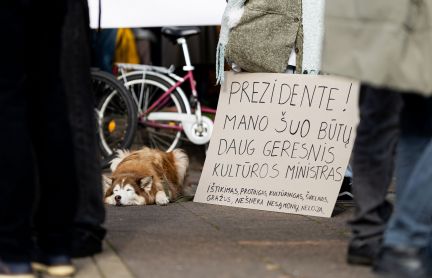 PREZIDENTE!
MANO ŠUO BŪTŲ
DAUG GERESNIS
KULTŪROS MINISTRAS
IŠTIKIMAS, PROTINGAS, KULTŪRINGAS, ŠVELNUS,
GRAŽUS, NEŠNEKA NESĄMONIŲ, NELOJA